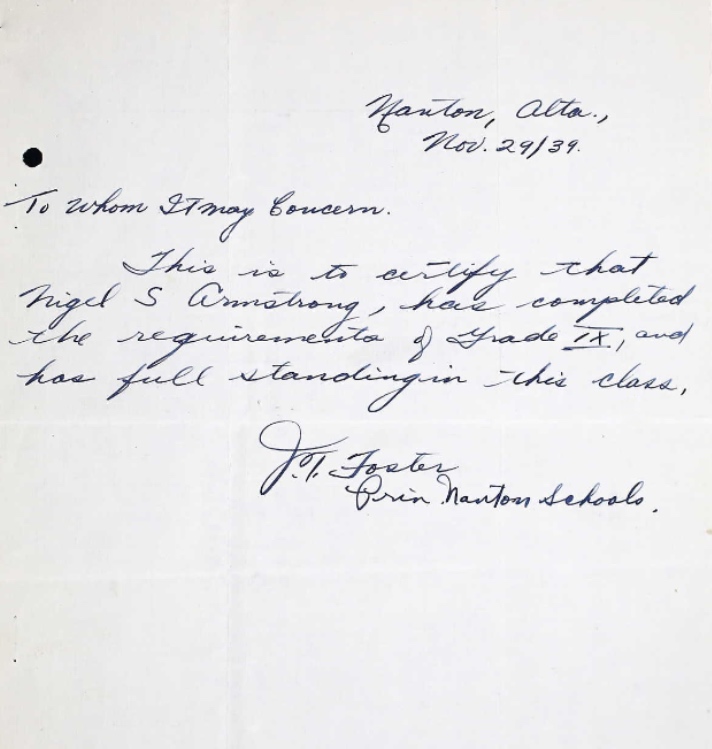 Nanton, Alta.,
Nov. 29/39.
To Whom It may Concern.
This is to certify that
Nigel S Armstrong, has completed
the requirements of Grade IX, and
has full standing in this class.
J.T. Foster
Prin Nanton Schools.